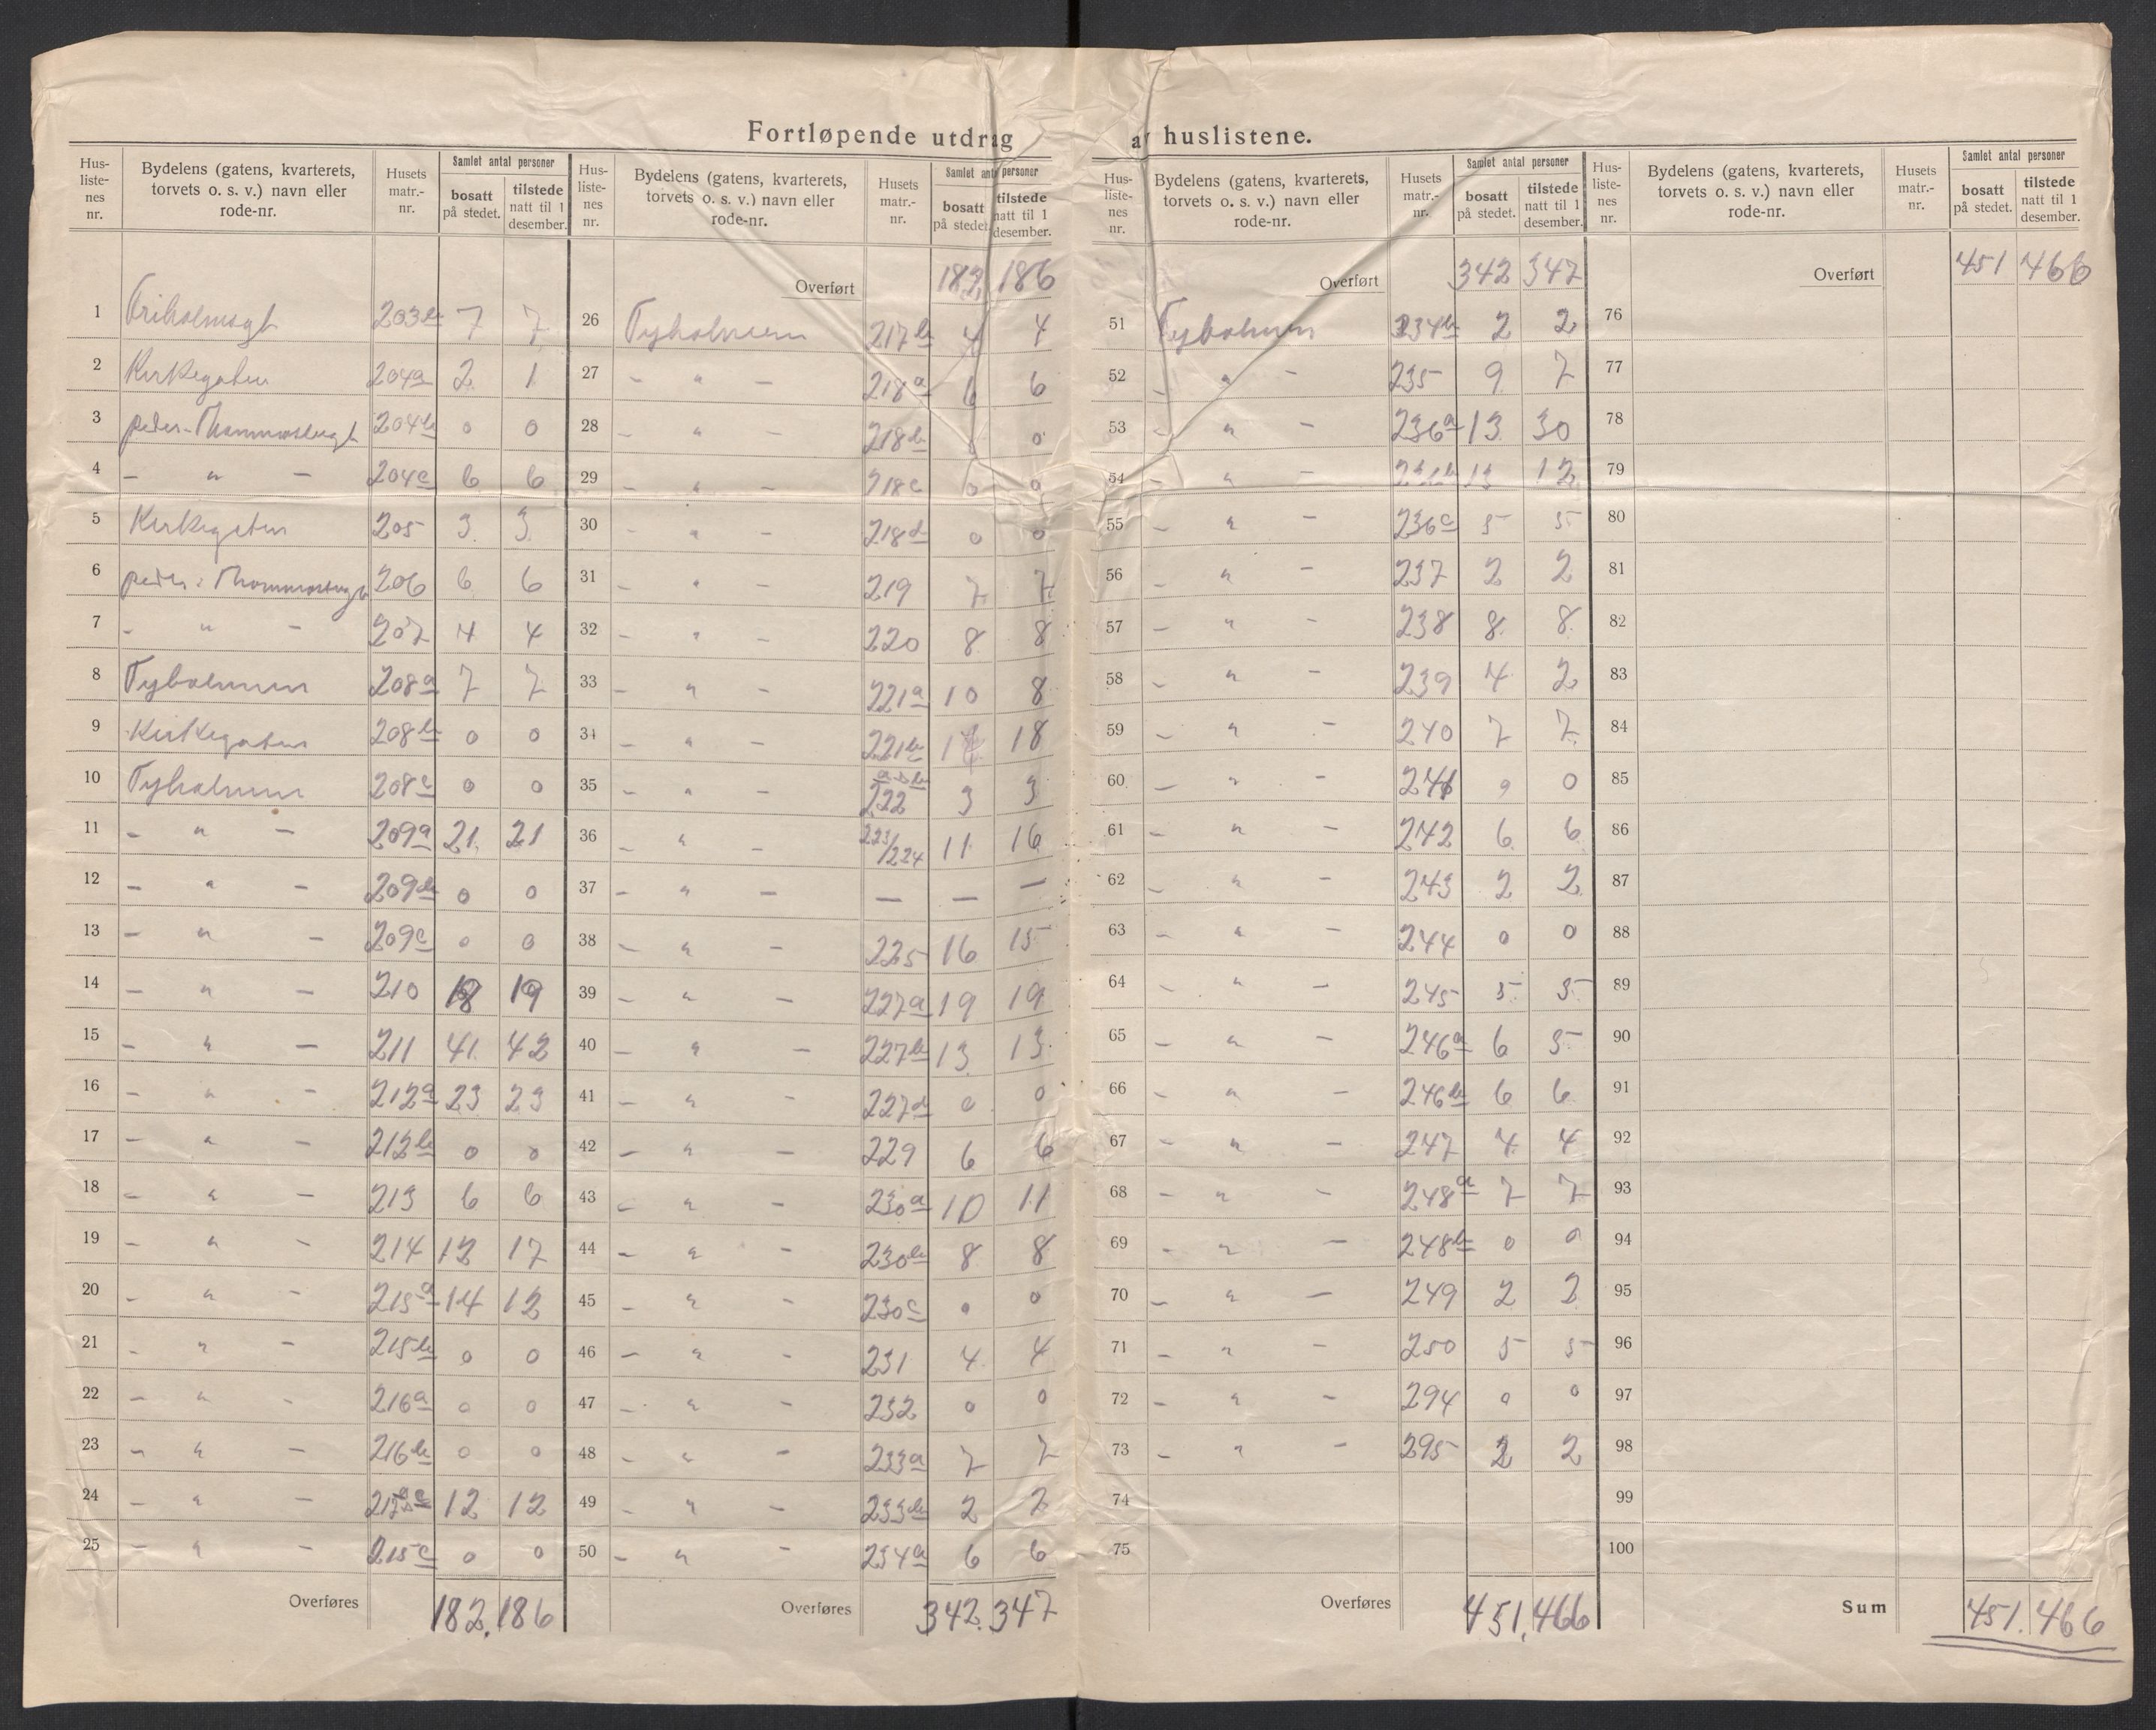 Fortløpende utdrag av huslistene.
Hus-listenes nr. | Bydelens (gatens, kvarterets, torvets o. s. v.) navn eller rode-nr. | Husets matr.-nr. | Samlet antal personer bosatt på stedet. | tilstede natt til 1 desember.
1 | Friholmsgt | 203b | 7 | 7
2 | Kirkegaten | 204a | 2 | 1
3 | | 204b | 0 | 0
4 | - " - | 204c | 6 | 6
5 | Kirkegaten | 205 | 3 | 3
6 | | 206 | 6 | 6
7 | - " - | 207 | 4 | 4
8 | Tyholmen | 208a | 7 | 7
9 | Kirkegaten | 208b | 0 | 0
10 | Tyholmen | 208c | 0 | 0
11 | - " - | 209a | 21 | 21
12 | - " - | 209b | 0 | 0
13 | - " - | 209c | 0 | 0
14 | - " - | 210 | 18 | 19
15 | - " - | 211 | 41 | 42
16 | - " - | 212a | 23 | 23
17 | - " - | 212b | 0 | 0
18 | - " - | 213 | 6 | 6
19 | - " - | 214 | 12 | 17
20 | - " - | 215a | 14 | 12
21 | - " - | 215b | 0 | 0
22 | - " - | 216a | 0 | 0
23 | - " - | 216b | 0 | 0
24 | - " - | | 12 | 12
25 | - " - | 215c | 0 | 0
Overføres | 182. | 186
Hus-listenes nr. | Bydelens (gatens, kvarterets, torvets o. s. v.) navn eller rode-nr. | Husets matr.-nr. | Samlet antal personer bosatt på stedet. | tilstede natt til 1 desember.
Overført | 182 | 186
26 | Tyholmen | 217b | 4 | 4
27 | - " - | 218a | 6 | 6
28 | - " - | 218b | | 0
29 | - " - | 218c | 0 | 0
30 | - " - | 218d | 0 | 0
31 | - " - | 219 | 7 | 7
32 | - " - | 220 | 8 | 8
33 | - " - | 221a | 10 | 8
34 | - " - | 221b | | 18
35 | - " - | 222 | 3 | 3
36 | - " - | 223/224 | 11 | 16
37 | - " - | — | — | —
38 | - " - | 225 | 16 | 15
39 | - " - | 227a | 19 | 19
40 | - " - | 227b | 13 | 13
41 | - " - | 227d | 0 | 0
42 | - " - | 229 | 6 | 6
43 | - " - | 230a | 10 | 11
44 | - " - | 230b | 8 | 8
45 | - " - | 230c | 0 | 0
46 | - " - | 231 | 4 | 4
47 | - " - | 232 | 0 | 0
48 | - " - | 233a | 7 | 7
49 | - " - | 233b | 2 | 2
50 | - " - | 234a | 6 | 6
Overføres | 342. | 347
Hus-listenes nr. | Bydelens (gatens, kvarterets, torvets o. s. v.) navn eller rode-nr. | Husets matr.-nr. | Samlet antal personer bosatt på stedet. | tilstede natt til 1 desember.
Overført | 342 | 347
51 | Tyholmen | 234b | 2 | 2
52 | - " - | 235 | 9 | 7
53 | - " - | 236a | 13 | 30
54 | - " - | 236b | 13 | 12
55 | - " - | 236c | 5 | 5
56 | - " - | 237 | 2 | 2
57 | - " - | 238 | 8 | 8
58 | - " - | 239 | 4 | 2
59 | - " - | 240 | 7 | 7
60 | - " - | 241 | 0 | 0
61 | - " - | 242 | 6 | 6
62 | - " - | 243 | 2 | 2
63 | - " - | 244 | 0 | 0
64 | - " - | 245 | 5 | 5
65 | - " - | 246a | 6 | 5
66 | - " - | 246b | 6 | 6
67 | - " - | 247 | 4 | 4
68 | - " - | 248a | 7 | 7
69 | - " - | 248b | 0 | 0
70 | - " - | 249 | 2 | 2
71 | - " - | 250 | 5 | 5
72 | - " - | 294 | 0 | 0
73 | - " - | 295 | 2 | 2
74
75
Overføres | 451. | 466
Hus-listenes nr. | Bydelens (gatens, kvarterets, torvets o. s. v.) navn eller rode-nr. | Husets matr.-nr. | Samlet antal personer bosatt på stedet. | tilstede natt til 1 desember.
Overført | 451 | 466
76
77
78
79
80
81
82
83
84
85
86
87
88
89
90
91
92
93
94
95
96
97
98
99
100
Sum | 451. | 466